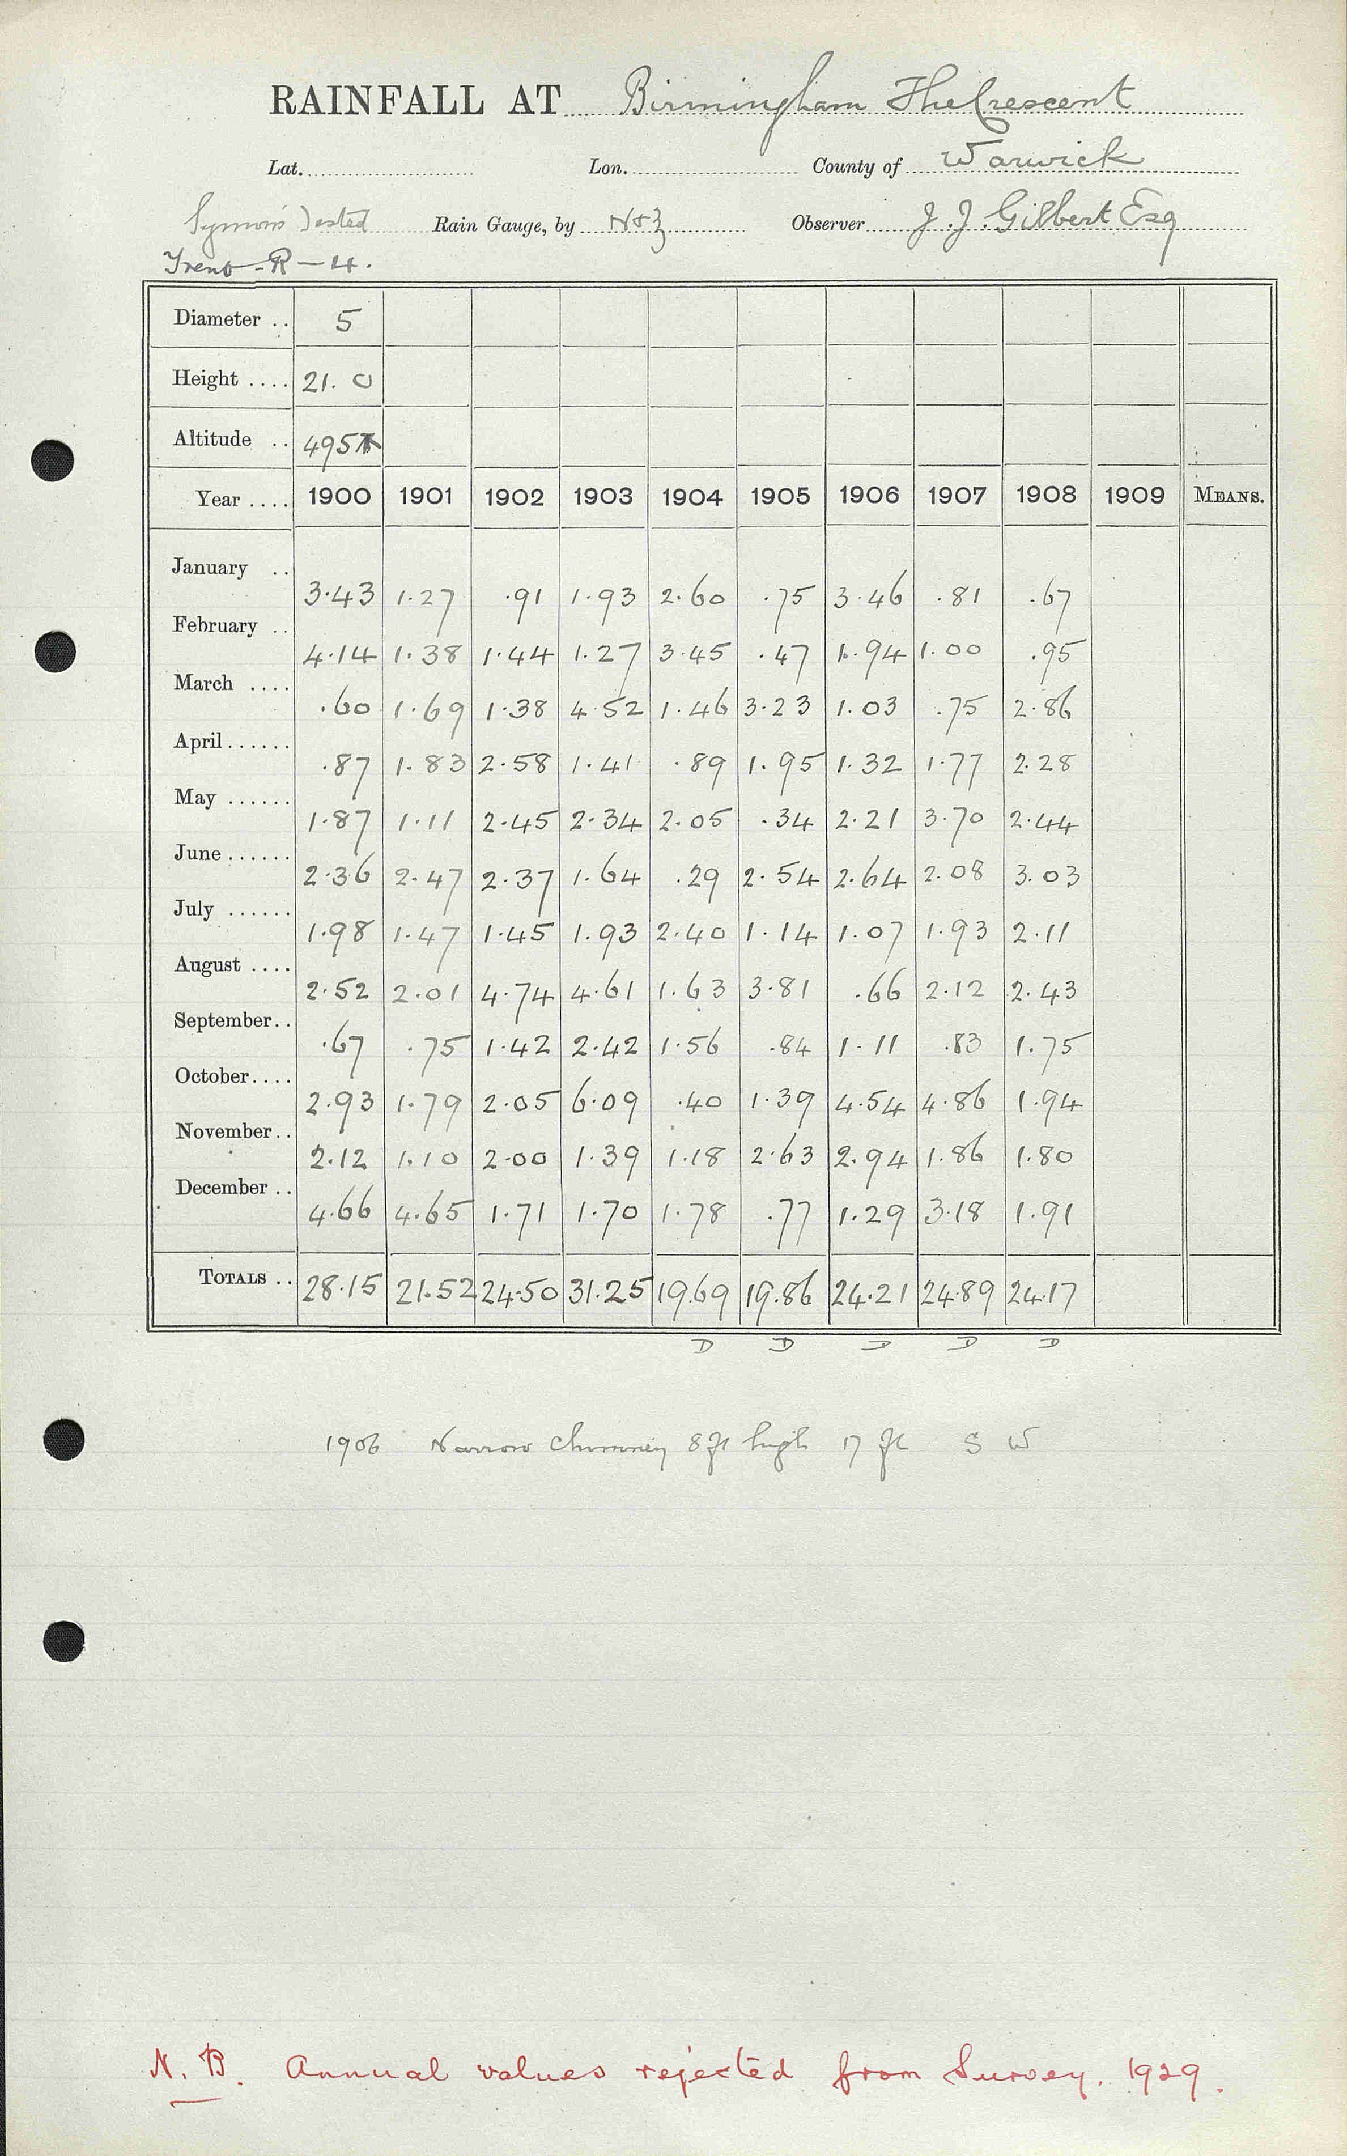 RAINFALL AT Birmingham The Crescent
Lat. Lon. County of Warwick
Symons Tested Rain Gauge, by N & Z Observer J. J. Gilbert Esq
Trent - R - 4.
Diameter .. 5
Height .... 21. 0
Altitude .. 495
Year .... 1900 1901 1902 1903 1904 1905 1906 1907 1908 1909 MEANS.
January .. 3.43 1.27 .91 1.93 2.60 .75 3.46 .81 .67
February .. 4.14 1.38 1.44 1.27 3.45 .47 1.94 1.00 .95
March .... .60 1.69 1.38 4.52 1.46 3.23 1.03 .75 2.86
April ...... .87 1.83 2.58 1.41 .89 1.95 1.32 1.77 2.28
May ...... 1.87 1.11 2.45 2.34 2.05 .34 2.21 3.70 2.44
June ...... 2.36 2.47 2.37 1.64 .29 2.54 2.64 2.08 3.03
July ...... 1.98 1.47 1.45 1.93 2.40 1.14 1.07 1.93 2.11
August .... 2.52 2.01 4.74 4.61 1.63 3.81 .66 2.12 2.43
September .. .67 .75 1.42 2.42 1.56 .84 1.11 .83 1.75
October .... 2.93 1.79 2.05 6.09 .40 1.39 4.54 4.86 1.94
November .. 2.12 1.10 2.00 1.39 1.18 2.63 2.94 1.86 1.80
December .. 4.66 4.65 1.71 1.70 1.78 .77 1.29 3.18 1.91
TOTALS .. 28.15 21.52 24.50 31.25 19.69 19.86 24.21 24.89 24.17
D D D D D
1906 Narrow chimney 8 ft high 17 ft S W
N. B. Annual values rejected from Survey. 1929.